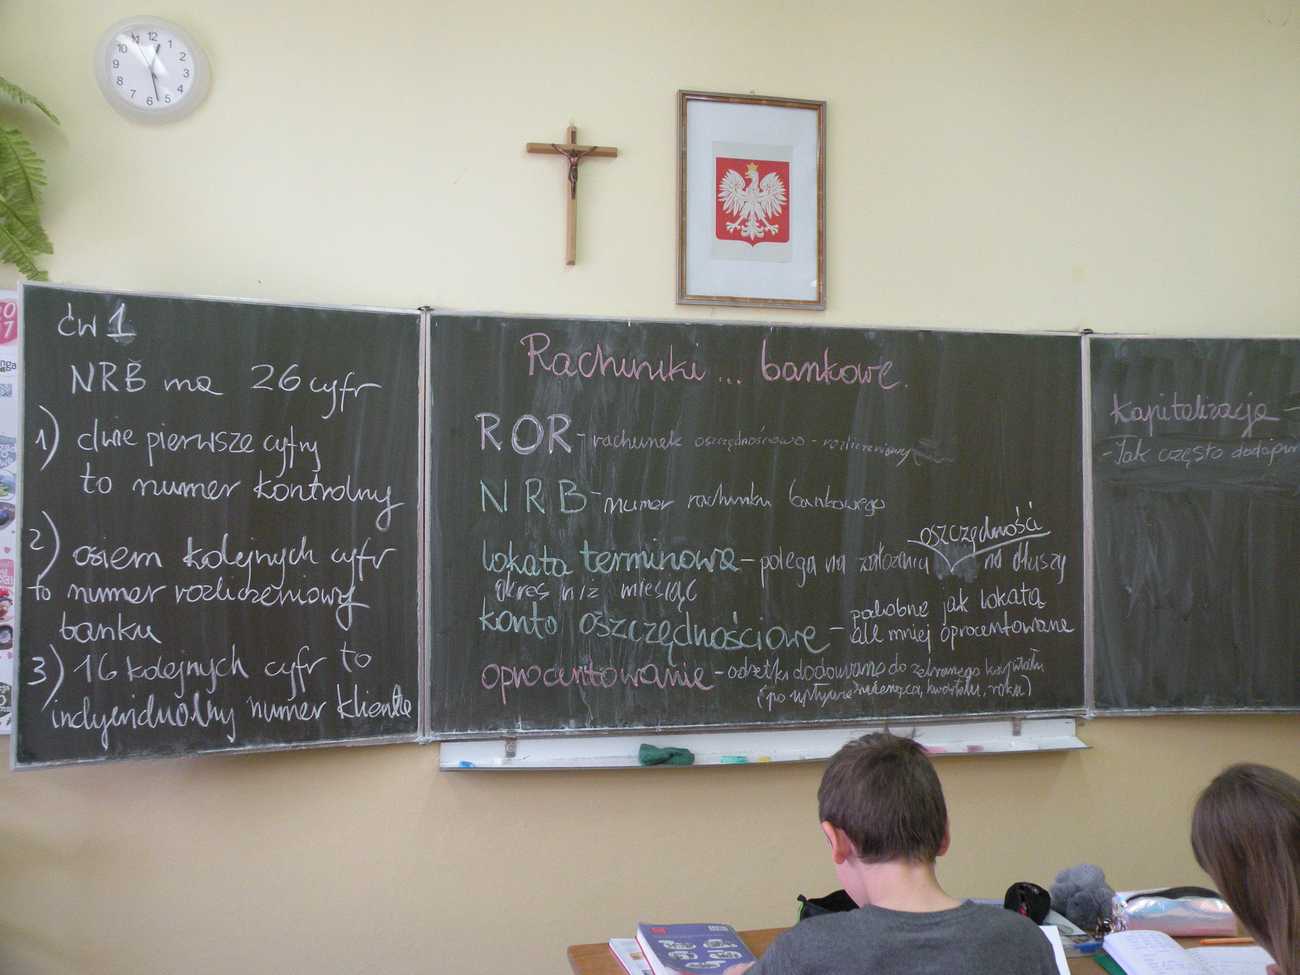 ćw 1
NRB ma 26 cyfr
1) dwie pierwsze cyfry
to numer kontrolny
2) osiem kolejnych cyfr
to numer rozliczeniowy
banku
3) 16 kolejnych cyfr to
indywidualny numer klienta
Rachunki ... bankowe.
ROR - rachunek oszczędnościowo - rozliczeniowy
NRB - numer rachunku bankowego
oszczędności
lokata terminowa - polega na złożeniu na dłuższy
okres niż miesiąc
konto oszczędnościowe - podobne jak lokata
ale mniej oprocentowane
oprocentowanie - odsetki dodawane do zebranego kapitału
(po upływie miesiąca, kwartału, roku)
Kapitalizacja -
- Jak często
12 1 2 3 4 5 6 7 8 9 10 11